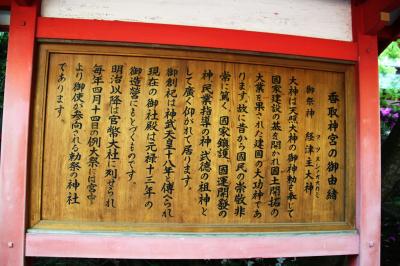 香取神宮の御由緒
御祭神 経津主大神
フツヌシノオオカミ
大神は天照大神の御神勅を奉じて
国家建設の基を開かれ国土開拓の
大業を果された建国の大功神であ
ります。故に昔から国民の崇敬非
常に篤く、国家鎮護、国運開発の
神、民業指導の神、武徳の祖神と
して広く仰がれて居ります。
御創祀は神武天皇十八年と傳へられ
現在の御社殿は元禄十三年の
御造営にもとづくものです。
明治以降は官幣大社に列せられ
毎年四月十四日の例大祭には宮中
より御使が参向される勅祭の神社
であります。